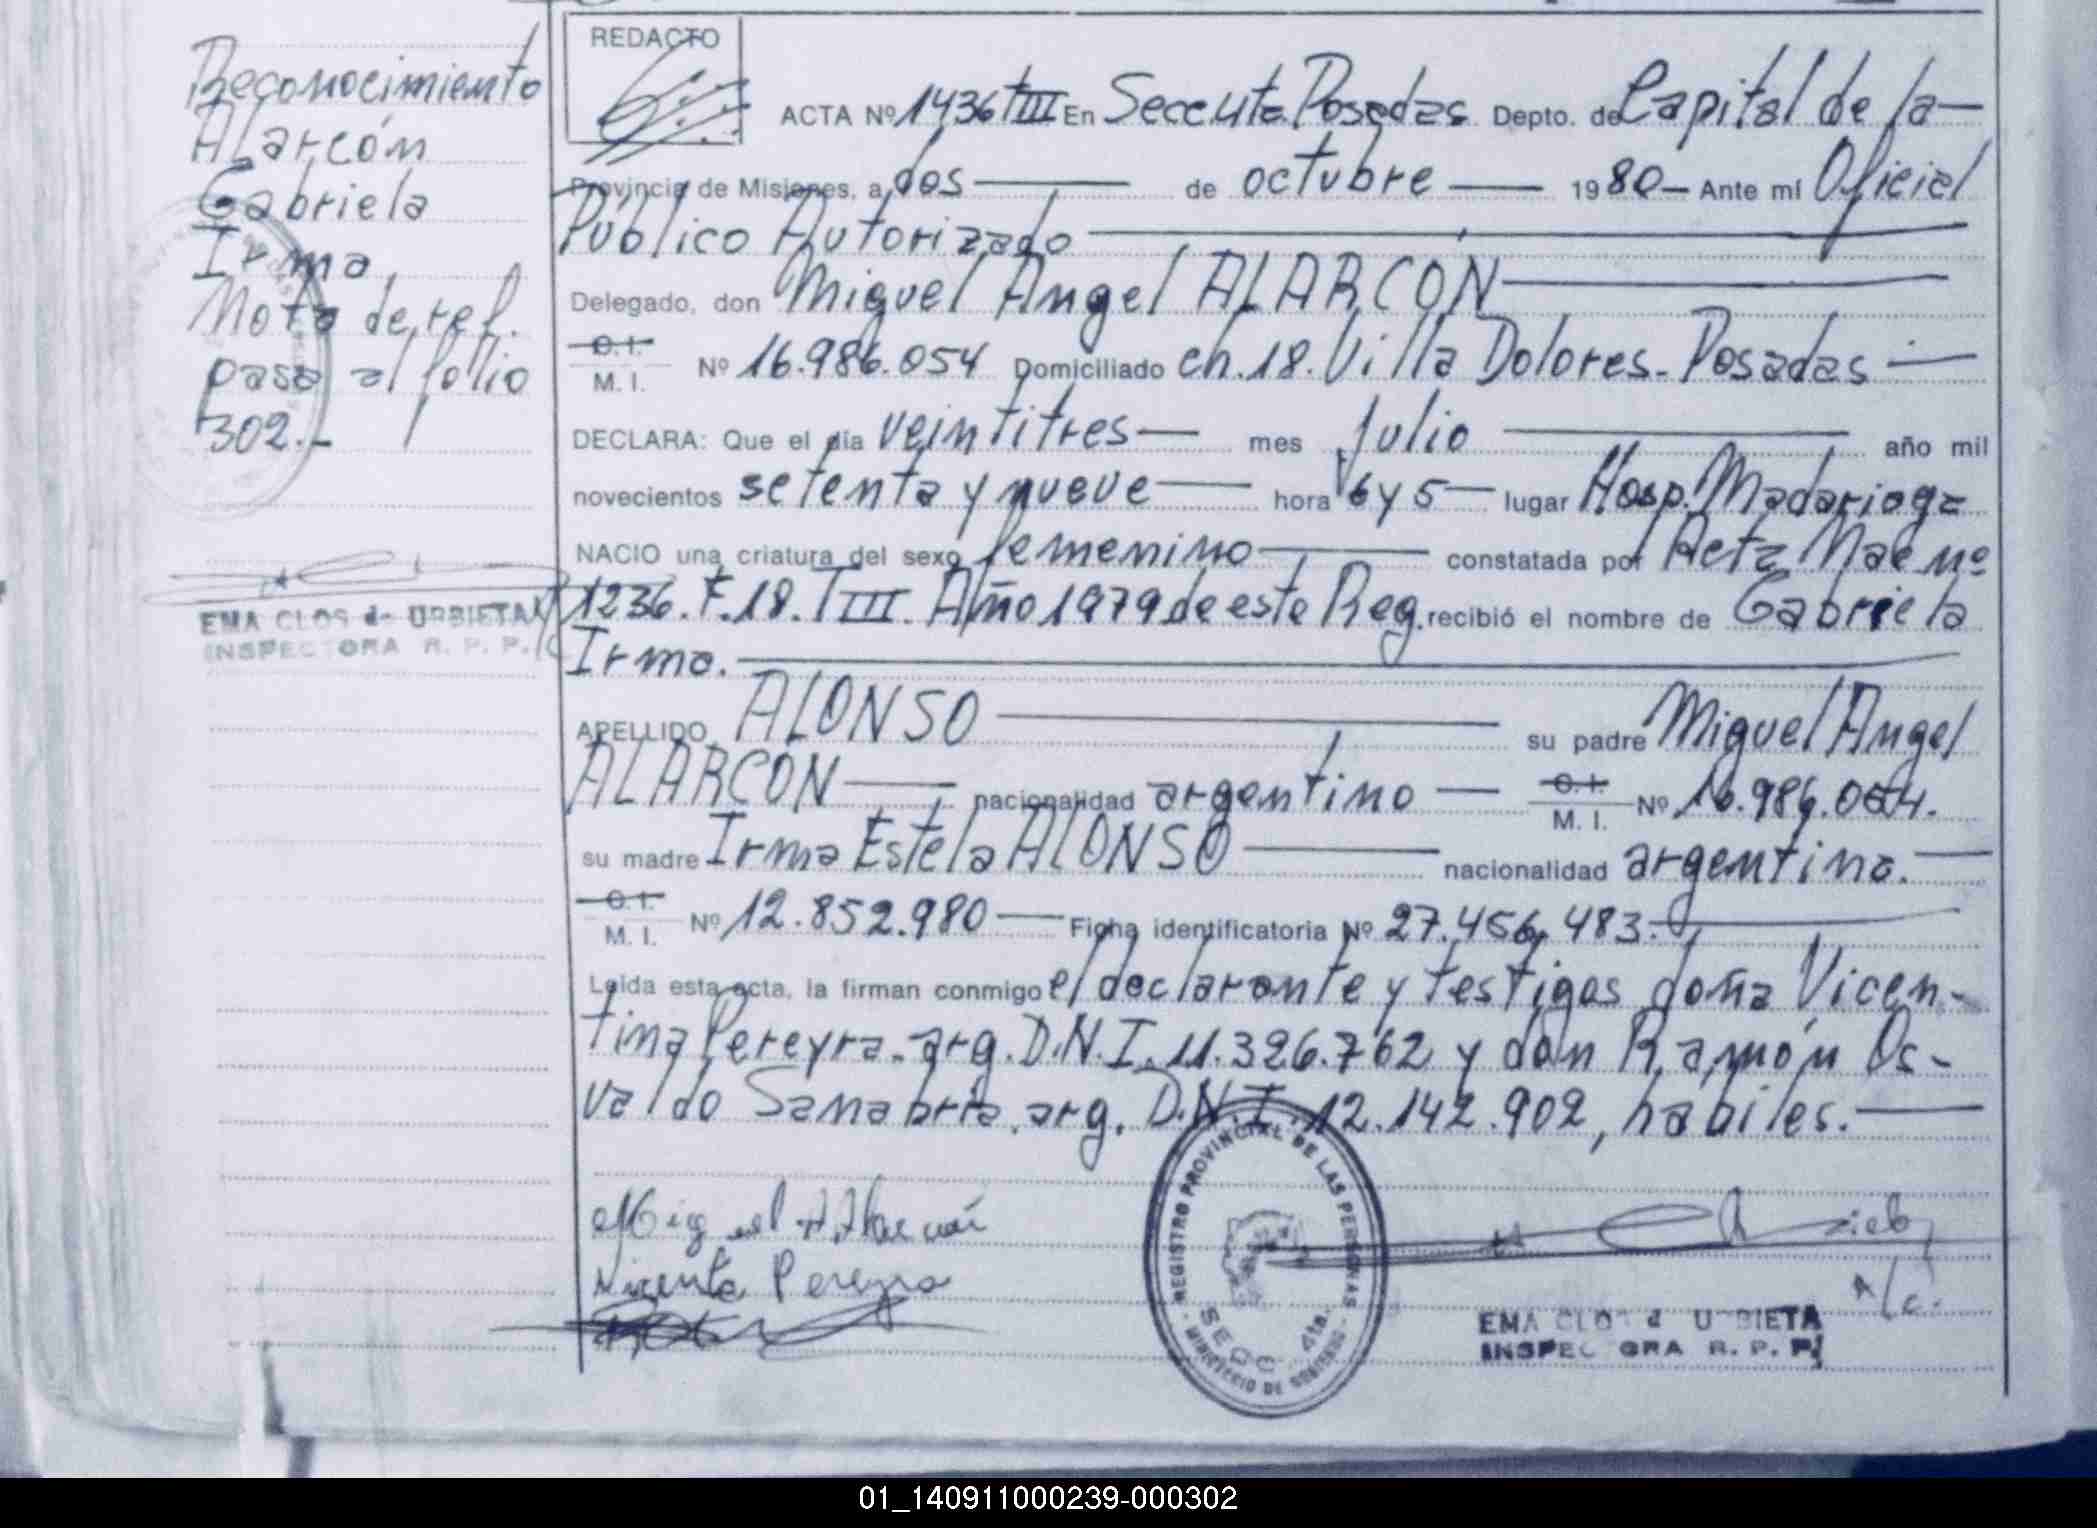 Reconocimiento
Alarcón
Gabriela
Irma
Nota de ref.
pasa al folio
302.-
EMA CLOS de URBIETA
INSPECTORA R. P. P.
REDACTO
ACTA Nº 1436 TIII En Secc. 4ta. Posadas Depto. de Capital de la
Provincia de Misiones, a dos de octubre 1980 Ante mí Oficial
Público Autorizado
Delegado, don Miguel Angel ALARCON
C. I.
M. I. Nº 16.986.054 Domiciliado ch. 18. Villa Dolores - Posadas
DECLARA: Que el día veintitres mes Julio año mil
novecientos setenta y nueve hora 6 y 5 lugar Hosp. Madariaga
NACIO una criatura del sexo femenino constatada por Acta Nac nº
1236. F. 18. TIII. Año 1979 de este Reg. recibió el nombre de Gabriela
Irma.
APELLIDO ALONSO su padre Miguel Angel
ALARCON nacionalidad argentino C. I. M. I. Nº 16.986.054.
su madre Irma Estela ALONSO nacionalidad argentina.
C. I.
M. I. Nº 12.852.980 Ficha identificatoria Nº 27.456.483.
Leída esta acta, la firman conmigo el declarante y testigos doña Vicen-
tina Pereyra - arg. D.N.I. 11.326.762 y don Ramón Os-
valdo Sanabria. arg. D.N.I. 12.142.902, hábiles.
Miguel A Alarcón
Vicenta Pereyra
REGISTRO PROVINCIAL DE LAS PERSONAS
SECC. 4ta.
MINISTERIO DE GOBIERNO
EMA CLOS d URBIETA
INSPECTORA R. P. P.
01_140911000239-000302